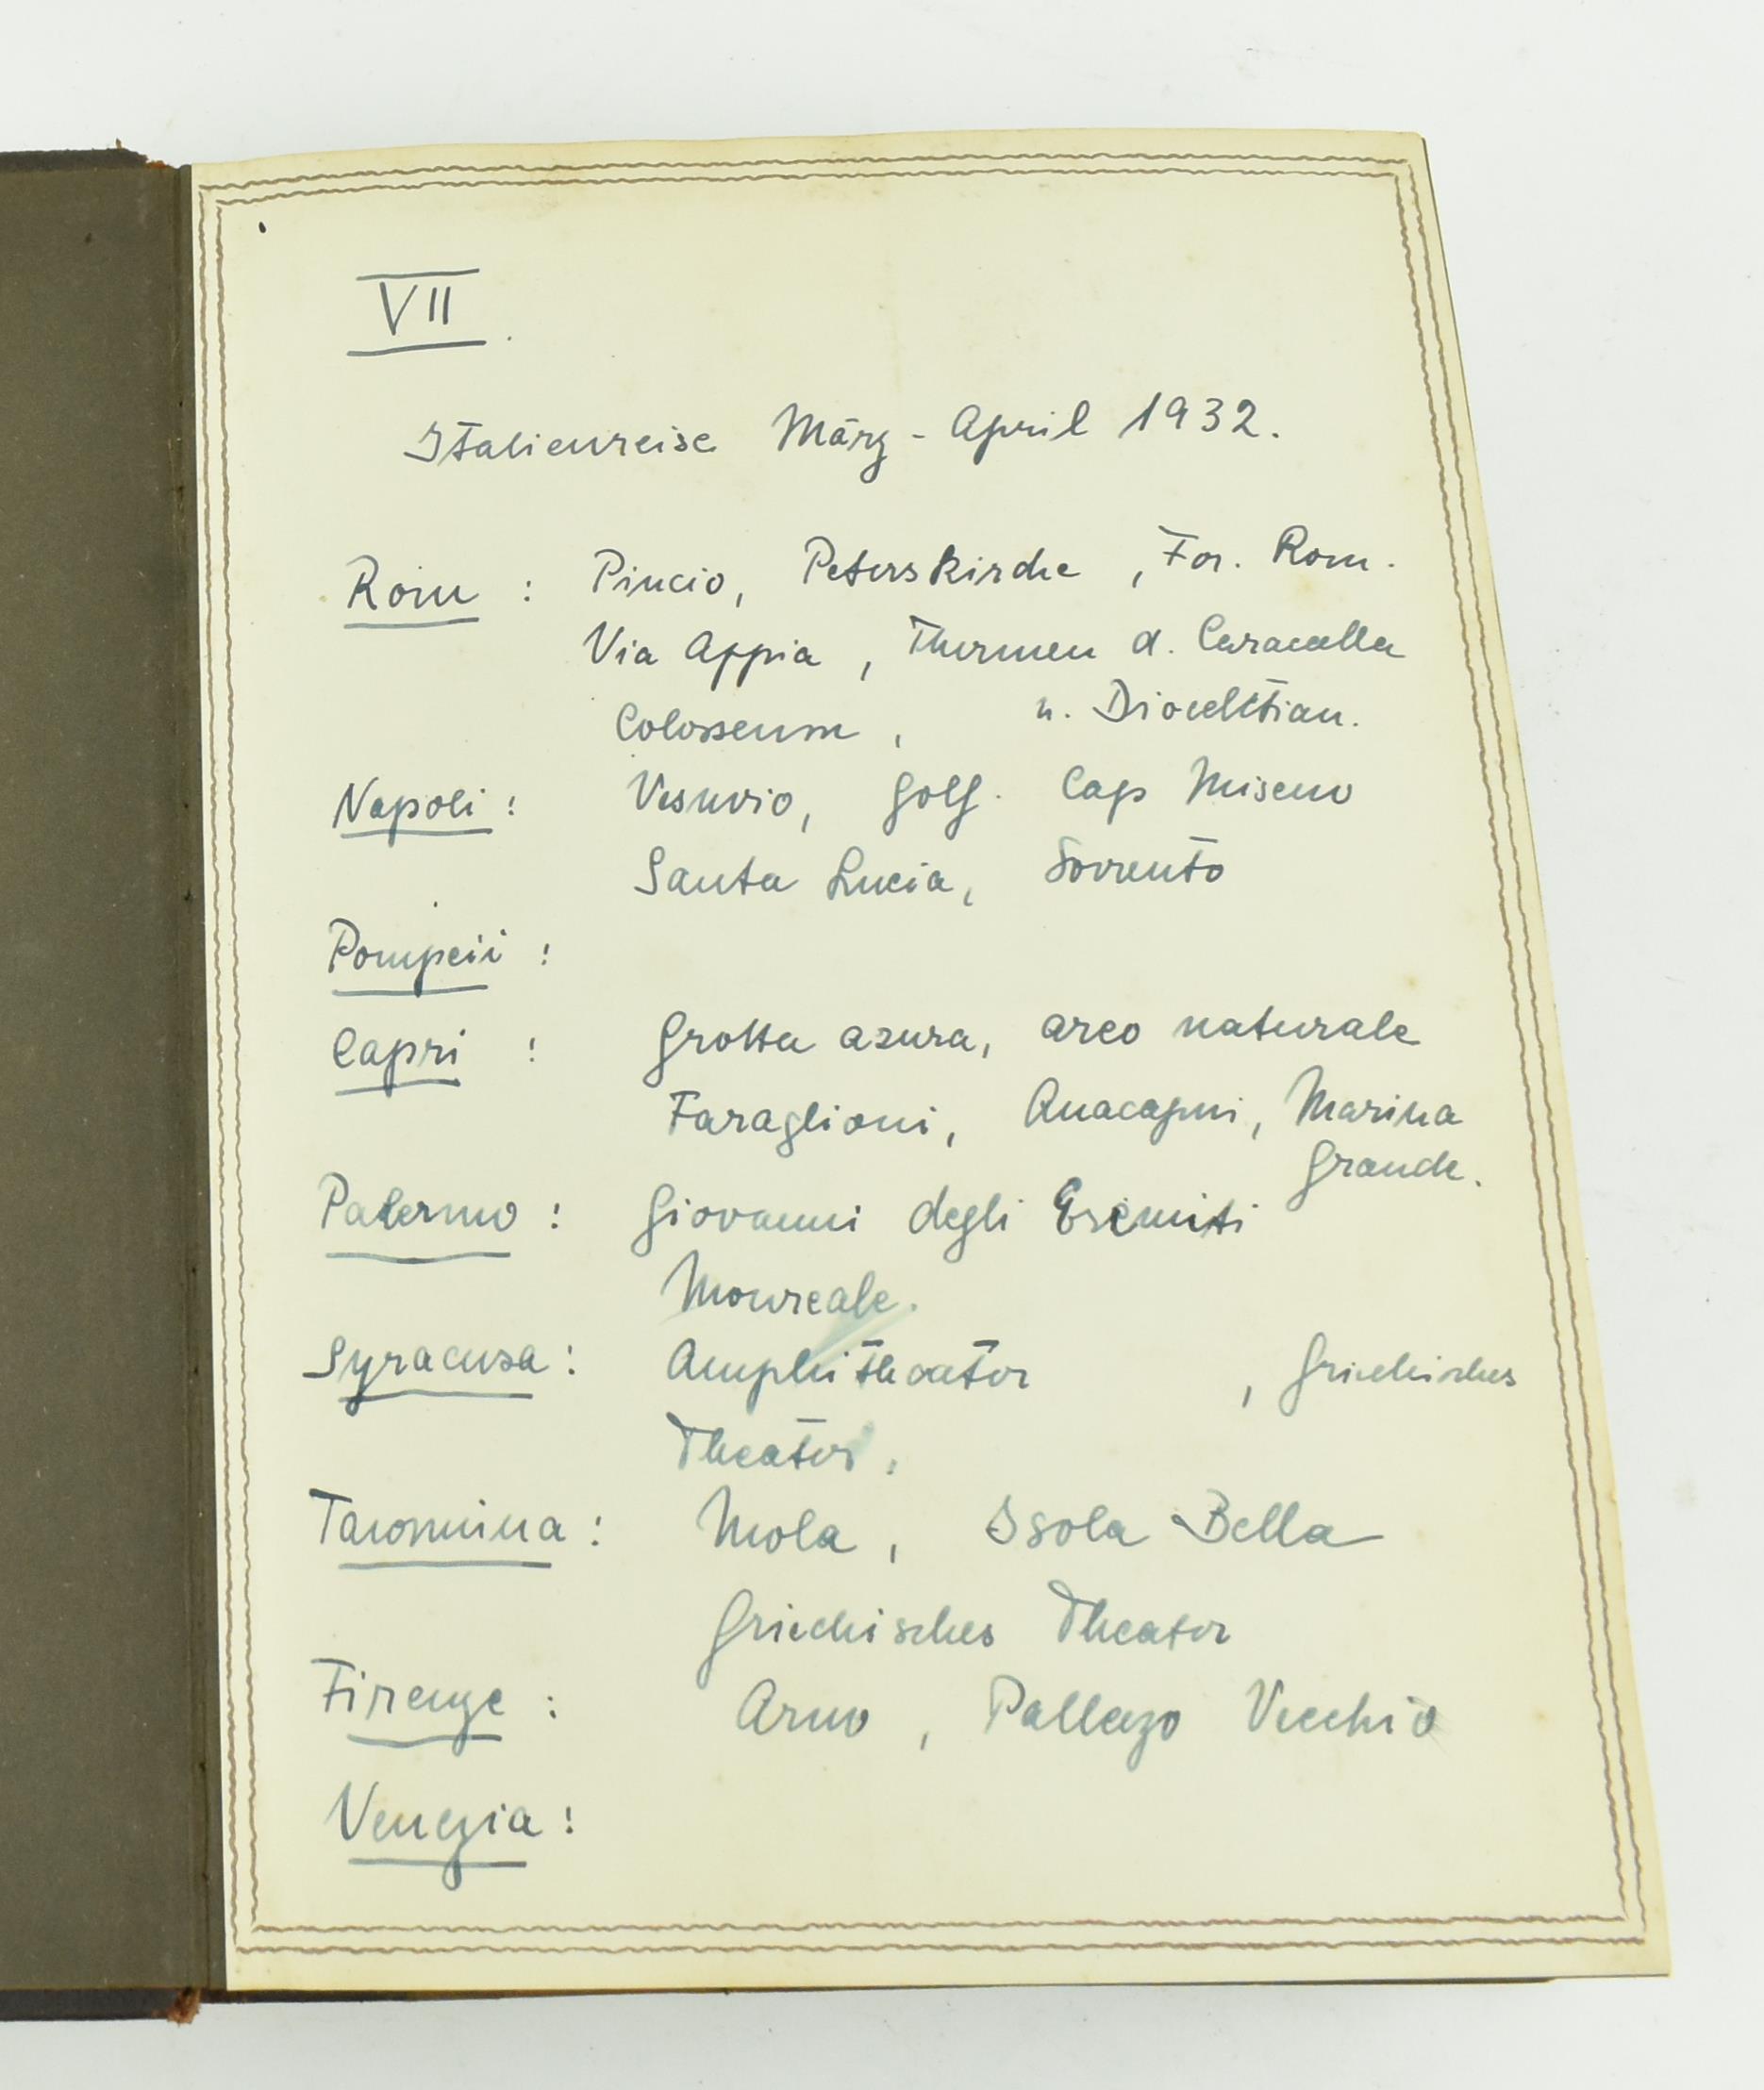 VII.
Italienreise März - April 1932.
Rom : Pincio, Peterskirche , For. Rom.
Via Appia , Thermen d. Caracalla
Colosseum , u. Diocletian.
Napoli : Vesuvio, Golf. Cap Miseno
Santa Lucia, Sorrento
Pompeii :
Capri : Grotta azura, arco naturale
Faraglioni, Anacapri, Marina
Grande.
Palermo : Giovanni degli Eremiti
Monreale.
Syracusa : Amphitheater , Griechisches
Theater,
Taormina : Mola , Isola Bella
Griechisches Theater
Firenze : Arno , Pallazo Vecchio
Venezia :